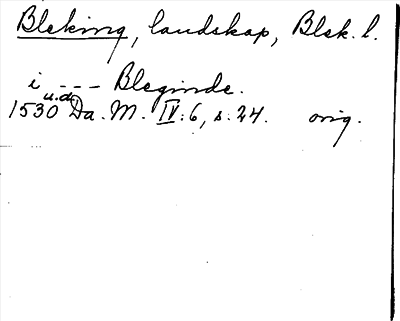 Bleking, landskap, Blek. l.
i --- Bleginde.
u.d.
1530 Da. M. IV: 6, s. 24. orig.